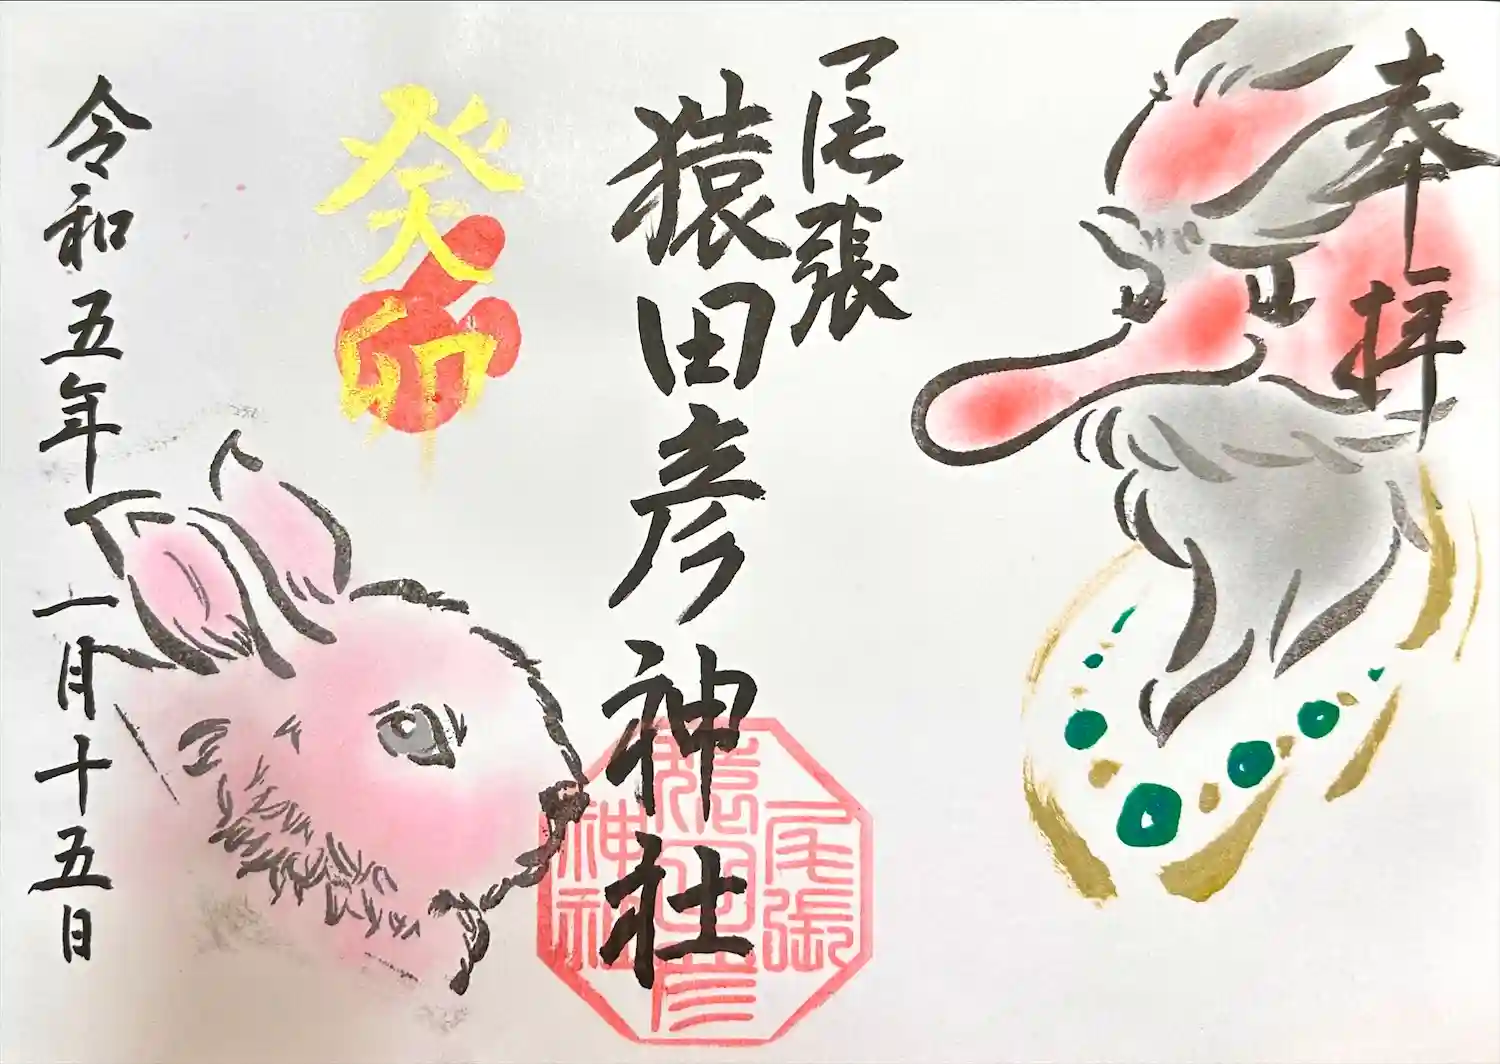 奉拝
尾張
猿田彦神社
尾張
猿田彦
神社
癸卯
令和五年一月十五日